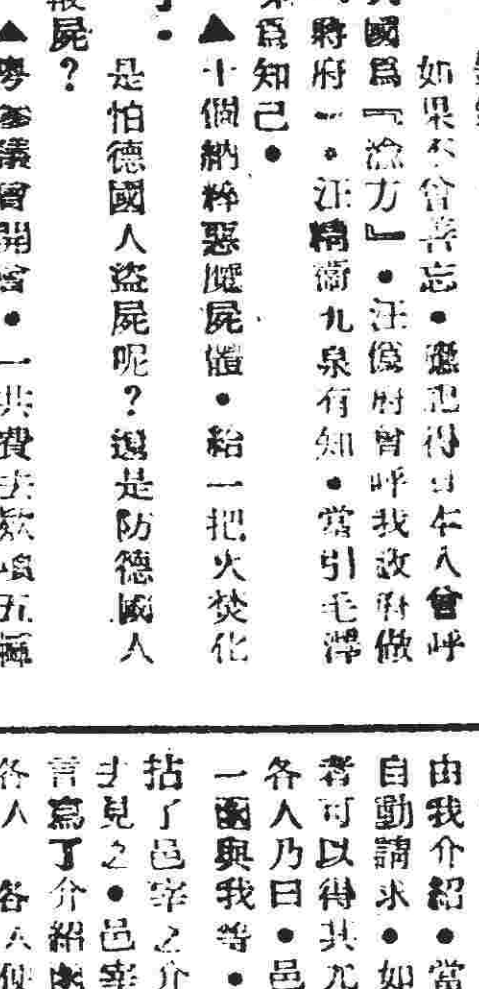 如果不會善忘●還記得日本人曾呼
國爲『渝方』●汪僞府曾呼我政府做
將府一●汪精衞九泉有知●當引毛澤
爲知己●
▲十個納粹惡魔屍體●給一把火焚化
●
是怕德國人盜屍呢？還是防德國人
屍？
▲粵參議會開會●一共費去欵項五
由我介紹●當
自動請求●如
者可以得其允
各人乃曰●邑
一函與我等●
拈了邑宰之介
見之●邑宰
言寫了介紹函
各人 各人便